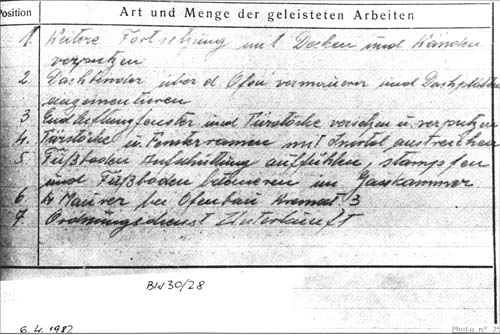 Position Art und Menge der geleisteten Arbeiten
1. Weitere Fortsetzung mit Decken und Wänden
verputzen
2. Dachfenster über d. Ofen vermauern und Dachplatten
3. und Türstöcke versehen u. verputzen
4. Türstöcke u. Fensterramen mit austreichen
5. Fußboden Aufschüttung auffühlen, stampfen
und Fußboden betonieren im Gasskammer
6. 4 Maurer bei Ofenbau Kremat. 3
7. Ordnungsdienst Unterkunft
BW 30/28
6.4.1982
Photo n°